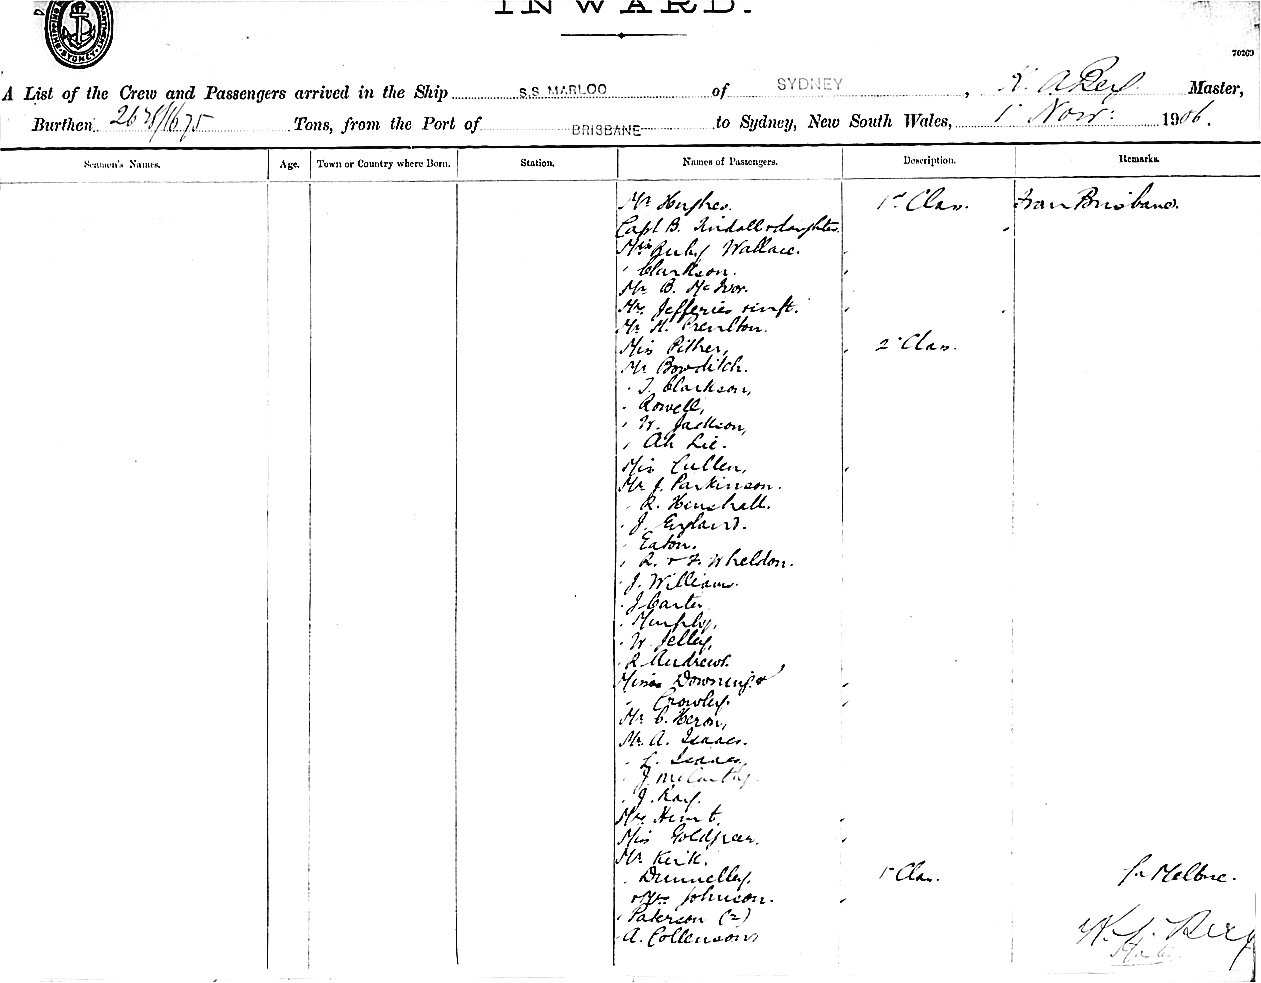 INWARD.
70263
A List of the Crew and Passengers arrived in the Ship S.S. MARLOO of SYDNEY, Master,
Burthen 2628/1675 Tons, from the Port of BRISBANE to Sydney, New South Wales, 1 Nov: 1906.
Seamen's Names. Age. Town or Country where Born. Station. Names of Passengers. Description. Remarks.
Mr Hughes. 1st Class. From Brisbane.
Capt B. Tindall & daughter
Miss Ruby Wallace.
" Clarkson.
Mr B. McIvor.
Mrs Jefferies & inft.
Mr H.
Miss Pither, 2 Class.
Mr Bowditch.
" T. Clarkson,
" Rowell,
" W. Jackson,
" Ah Lee.
Miss Cullen,
Mr J. Parkinson.
" R. Henshall.
" J. England.
" Eaton.
" R. & F. Wheldon.
" J. Williams.
" J Carter
" Murphy,
" W Jelley,
" R Andrews.
Misses Downing &
" Crowley.
Mr C. Heron,
Mr A. Isaacs.
" L. Isaacs,
" J McCarthy.
" J. Kay.
Mrs Hunt.
Miss
Mr Kirk.
" Dunnelley. 1 Class. for Melbne.
" & Mrs Johnson.
" Paterson (2)
" A. Collenson
Berg
Master